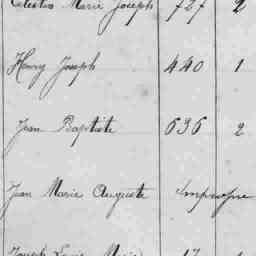 Celestin Marie Joseph 727 2
Henry Joseph 440 1
Jean Baptiste 636 2
Jean Marie Auguste Impropre
Joseph Louis Marie 17